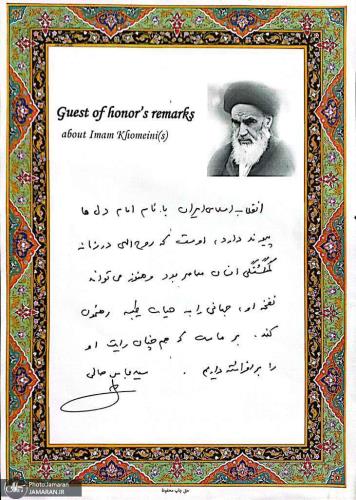 Guest of honor's remarks
about Imam Khomeini(s)
انقلاب اسلامی ایران با نام امام دل ها
پیوند دارد، اوست که روح الهی در زمانه
گمگشتگی انسان معاصر بود و هنوز می تواند
نغمه او، جهانی را به حیات طیبه رهنمون
کند. بر ماست که همچنان رایت او
را برافراشته داریم. سید عباس صالحی
حق چاپ محفوظ
PhotoJamaran
JAMARAN.IR